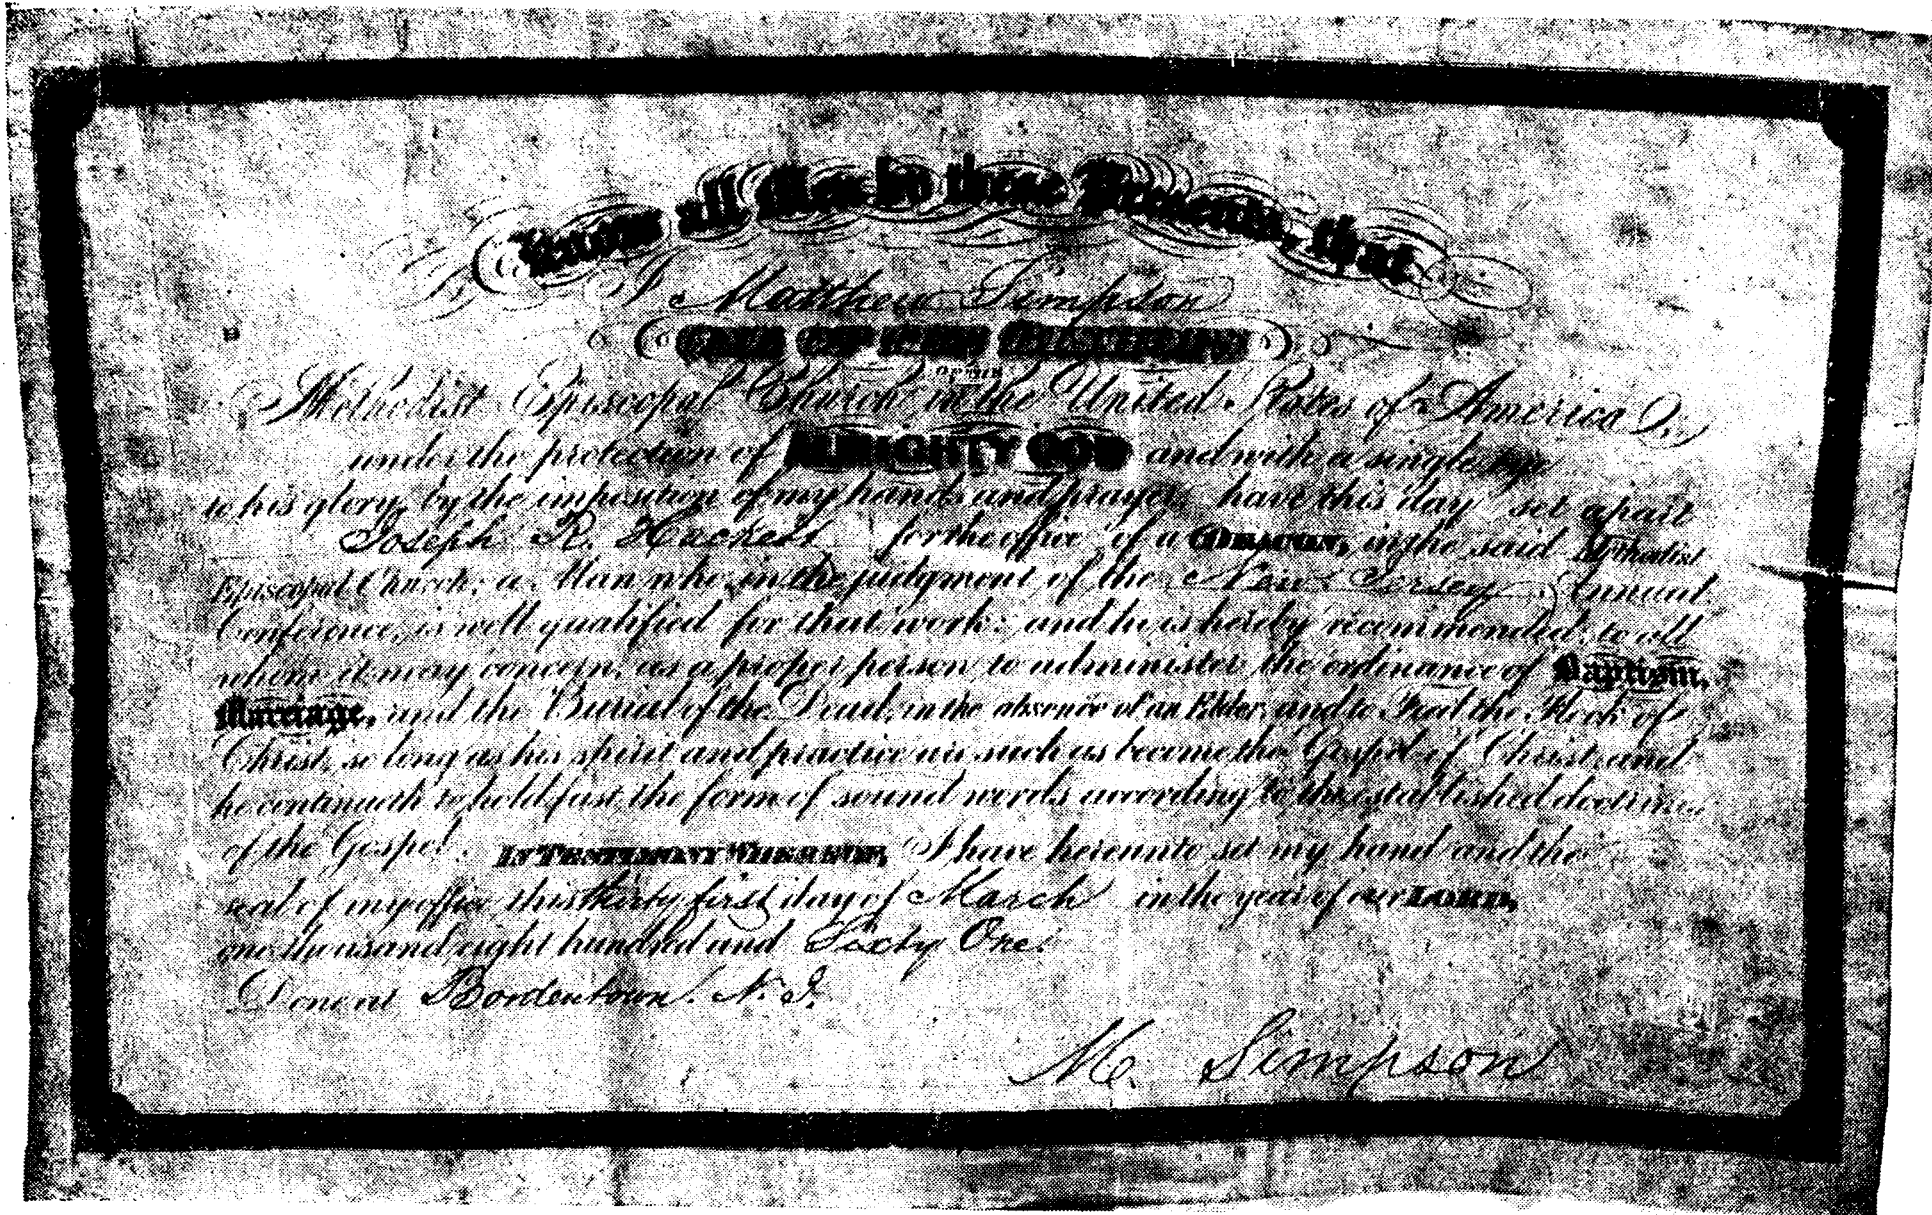 Know all Men by these Presents, that
I Matthew Simpson
ONE OF THE BISHOPS
OF THE
Methodist Episcopal Church in the United States of America,
under the protection of ALMIGHTY GOD and with a single eye
to his glory, by the imposition of my hands and prayer, have this day set apart
Joseph R. Hackett for the office of a DEACON, in the said Methodist
Episcopal Church; a Man who in the judgment of the New Jersey Annual
Conference, is well qualified for that work; and he is hereby recommended to all
whom it may concern, as a proper person to administer the ordinance of Baptism,
Marriage, and the Burial of the Dead, in the absence of an Elder, and to Feed the Flock of
Christ, so long as his spirit and practice are such as become the Gospel of Christ, and
he continueth to hold fast the form of sound words according to the established doctrines
of the Gospel. IN TESTIMONY WHEREOF, I have hereunto set my hand and the
seal of my office this thirty first day of March in the year of our LORD,
one thousand eight hundred and Sixty One.
Done at Bordentown. N. J.
M. Simpson